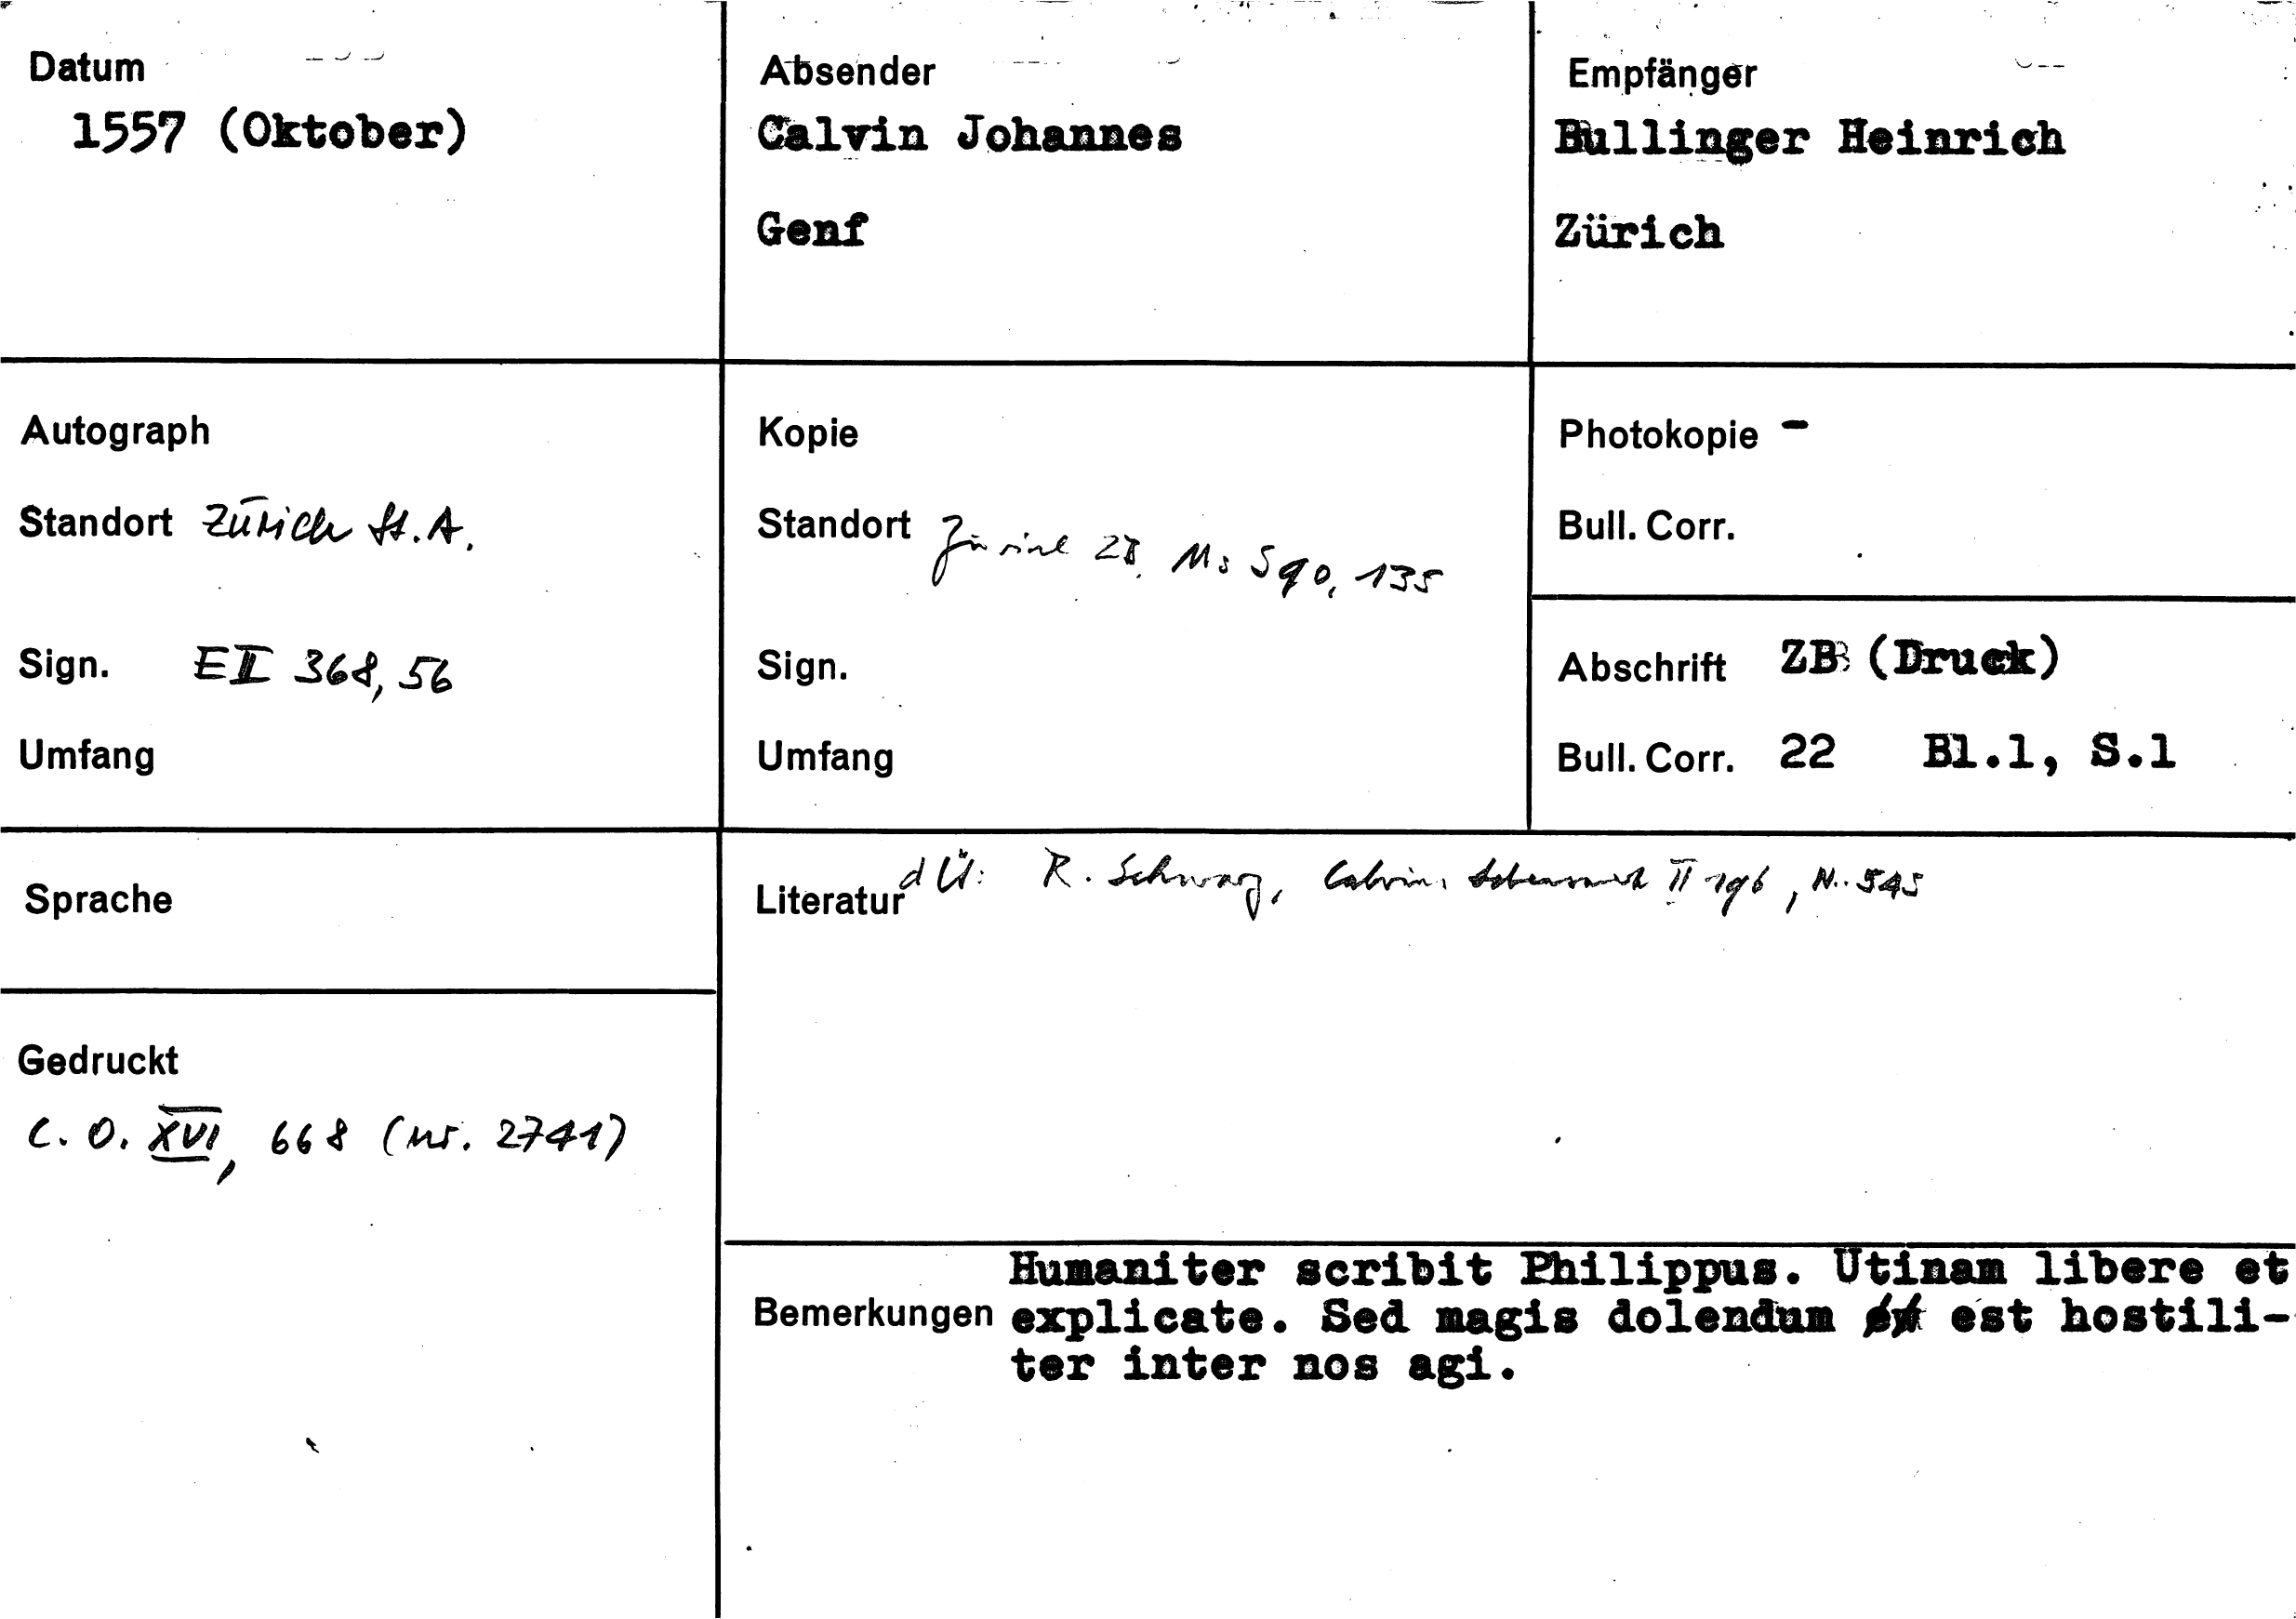 Datum
1557 (Oktober)
Absender
Calvin Johannes
Genf
Empfänger
Bullinger Heinrich
Zürich
Autograph
Standort Zürich St.A.
Sign. E II 368, 56
Umfang
Kopie
Standort Zürich ZB, Ms S 90, 135
Sign.
Umfang
Photokopie -
Bull. Corr.
Abschrift ZB (Druck)
Bull. Corr. 22 Bl.1, S.1
Sprache
Gedruckt
C. O. XVI, 668 (nr. 2741)
Literatur dÜ: R. Schwarz, Calvins II 196, N. 545
Bemerkungen
Humaniter scribit Philippus. Utinam libere et
explicate. Sed magis dolendum est hostili-
ter inter nos agi.